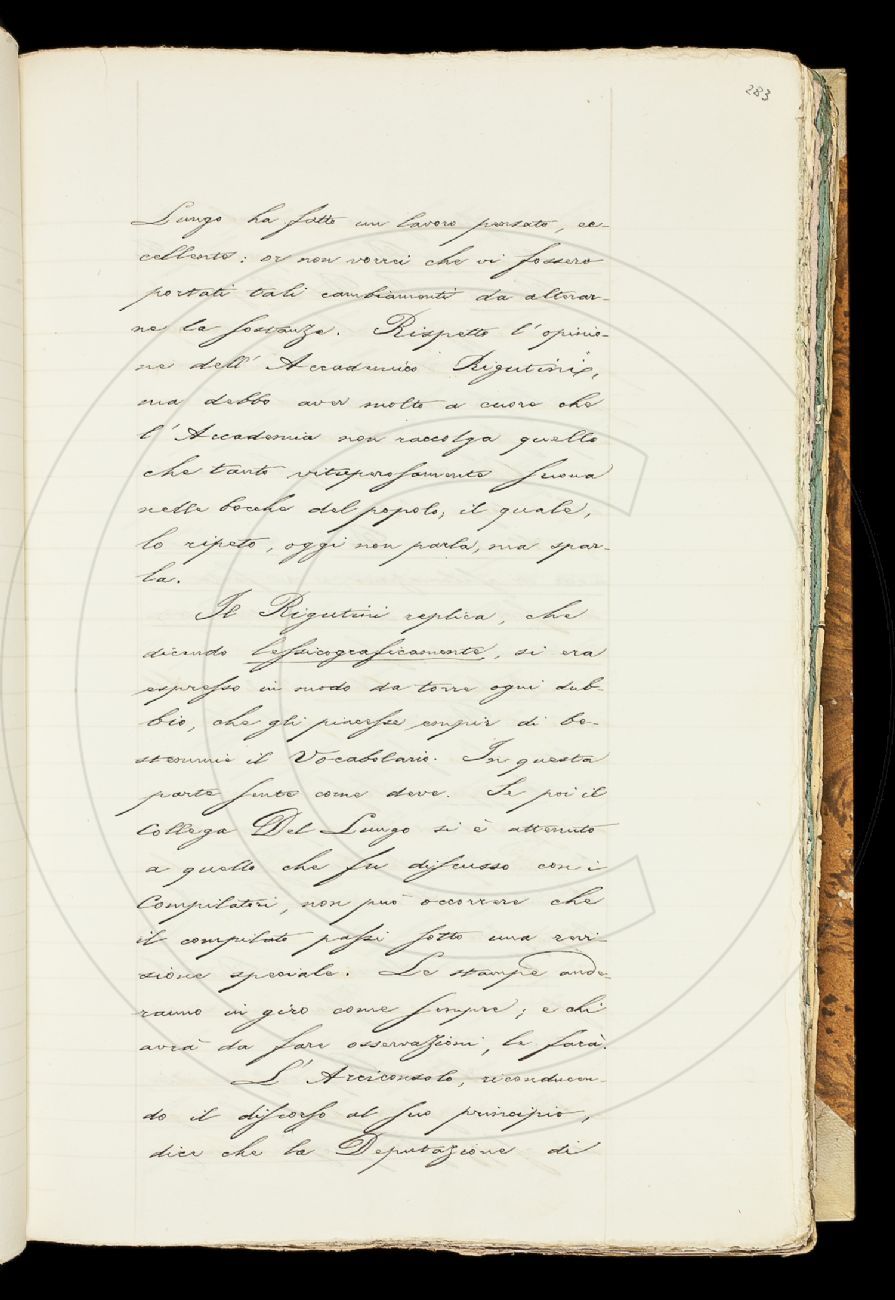 283
Lungo ha fatto un lavoro pensato, ec-
cellente: or non vorrei che vi fossero
portati tali cambiamenti da alterar-
ne la sostanza. Rispetto l'opinio-
ne dell'Accademico Rigutini,
ma debbo aver molto a cuore che
l'Accademia non raccolga quello
che tanto vituperosamente suona
nelle bocche del popolo; il quale,
lo ripeto, oggi non parla, ma spar-
la.
Il Rigutini replica, che
dicendo lessicograficamente, si era
espresso in modo da torre ogni dub-
bio, che gli piacesse empir di be-
stemmie il Vocabolario. In questa
parte sente come deve. Se poi il
Collega Del Lungo si è attenuto
a quello che fu discusso con i
Compilatori, non può occorrere che
il compilato passi sotto una revi-
sione speciale. Le stampe ande-
ranno in giro come sempre; e chi
avrà da fare osservazioni, le farà.
L'Arciconsolo, riconducen-
do il discorso al suo principio,
dice che la Deputazione di